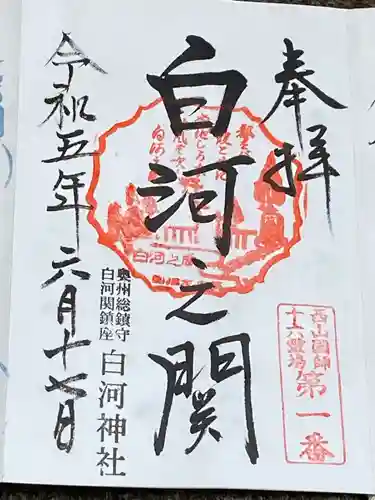 奉拝
白河之関
令和五年六月十七日
奥州総鎮守
白河関鎮座
白河神社
西山国師
十六霊場
第一番
白河之関